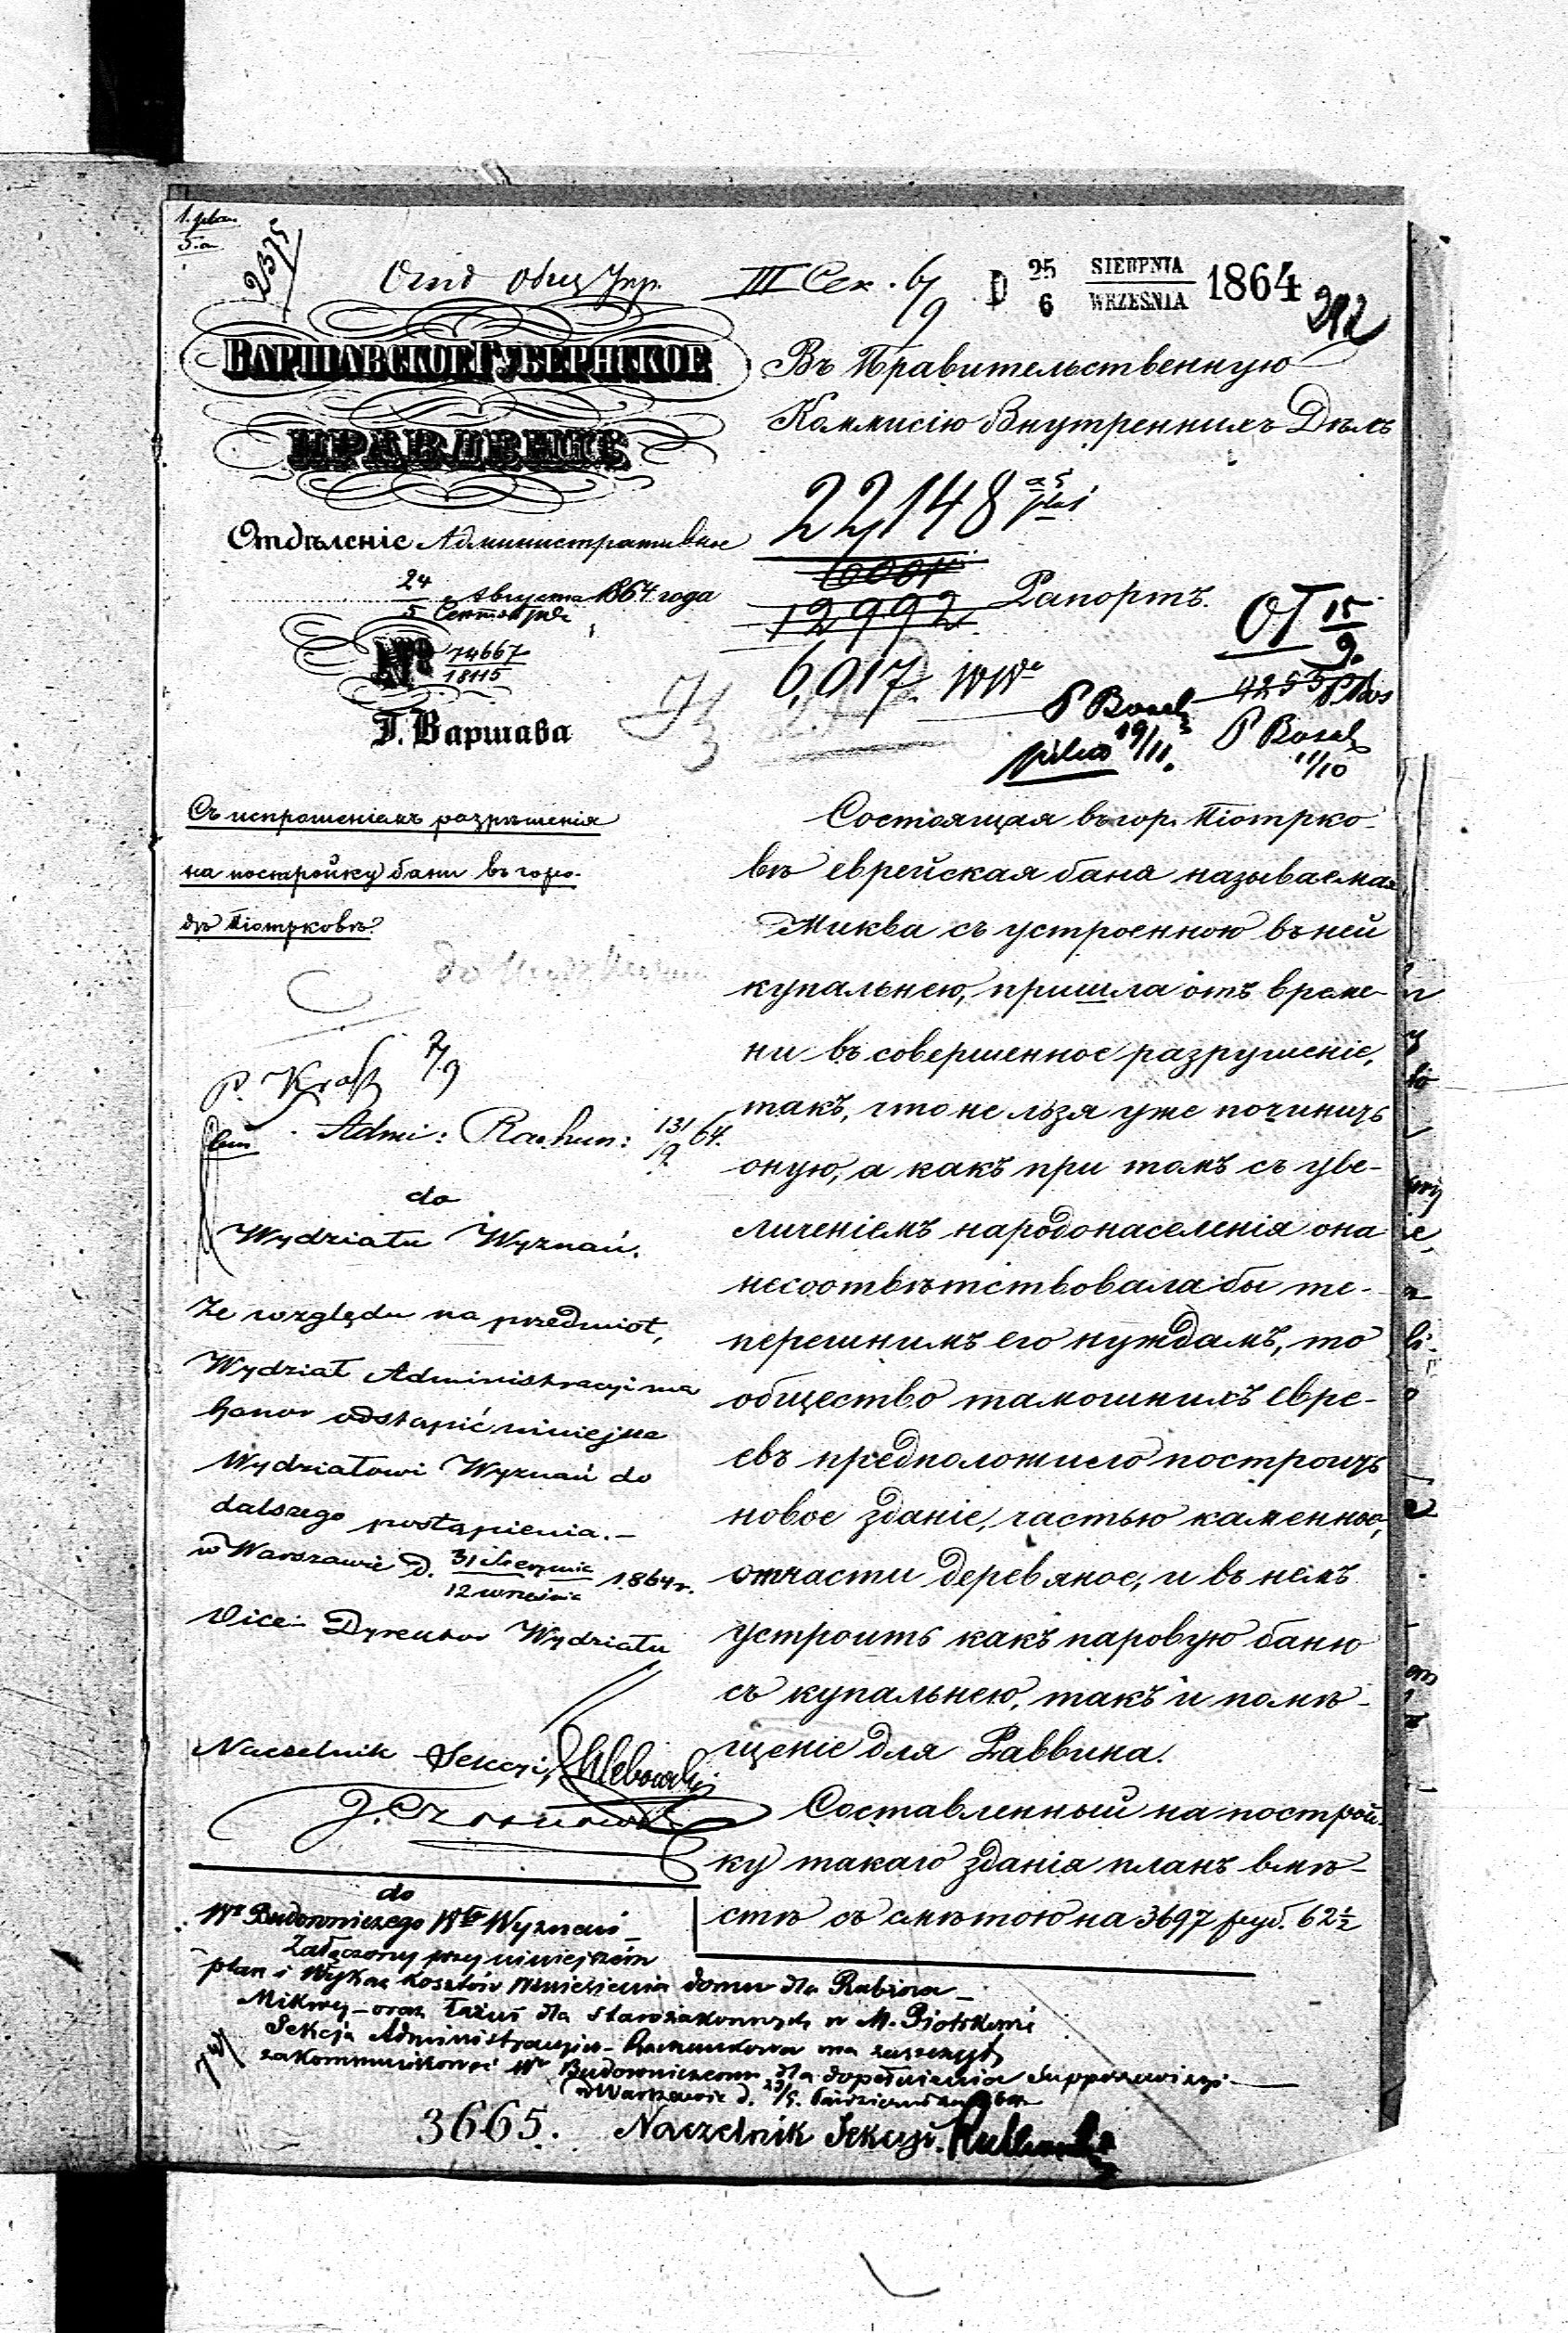 2375
Отд общ Упр.
III Сек. 6/9
D 25 SIERPNIA 1864
6 WRZEŚNIA
292
ВАРШАВСКОЕ ГУБЕРНСКОЕ
ПРАВЛЕНІЕ
Отдѣленіе Административное
24 Августа 1864 года
5 Сентября
№ 74667
18115
Г. Варшава
Въ Правительственную
Коммисію Внутреннихъ Дѣлъ
22,148
12992
Рапортъ.
6,017
ОТ 15/9.
19/11.
11/10
Съ испрошеніемъ разрѣшенія
на постройку бани въ горо-
дѣ Піотрковѣ.
P. Kraft 7/9
Admi: Rachun: 131/9 64.
do
Wydziału Wyznań.
Ze względu na przedmiot,
Wydział Administracyi ma
honor odstąpić niniejsze
Wydziałowi Wyznań do
dalszego postąpienia.-
w Warszawie D. 31 Sierpnia 1864 r.
12 września
Vice- Dyrektor Wydziału
Naczelnik Sekcyi,
Состоящая въ гор. Піотрко-
вѣ еврейская баня называемая
Миква съ устроенною въ ней
купальнею, пришла отъ време-
ни въ совершенное разрушеніе,
такъ, что не льзя уже починить
оную, а какъ при томъ съ уве-
личеніемъ народонаселенія она
несоотвѣтствовала бы те-
перешнимъ его нуждамъ, то
общество тамошнихъ евре-
евъ предположило построить
новое зданіе, частью каменное,
отчасти деревяное, и въ немъ
устроить какъ паровую баню
съ купальнею, такъ и помѣ-
щеніе для Раввина.
Составленный на построй-
ку такаго зданія планъ вмѣ-
стѣ съ смѣтою на 3697 руб. 62½
do
Wo Budowniczego Włu Wyznań
Załączony przy niniejszém
plan i Wykaz kosztów Wzniesienia domu dla Rabina
Mikwy - oraz łaźni dla Starozakonnych w M. Piotrkowie
Sekcja Administracyjno- Rachunkowa ma zaszczyt
zakommunikować Wu Budowniczemu dla dopełnienia Superrewizyi
w Warszawie d.
3665. Naczelnik Sekcyi.